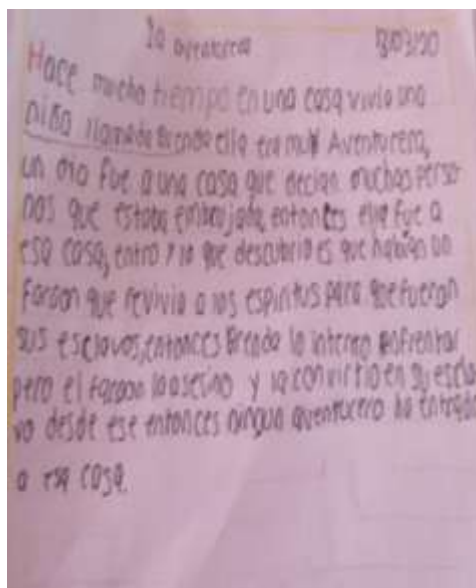 la aventurera 13/03/20
Hace mucho tiempo en una casa vivia una
niña llamada Brenda ella era muy Aventurera,
un dia fue a una casa que decian muchas perso-
nas que estaba embrujada, entonces ella fue a
esa casa, entro y lo que descubrio es que habian un
Faraon que revivia a los espiritus para que fueran
sus esclavos, entonces Brenda lo intento enfrentar
pero el faraon la asesino y la convirtio en su escla
vo desde ese entonces ningun aventurero ha entrado
a esa casa.